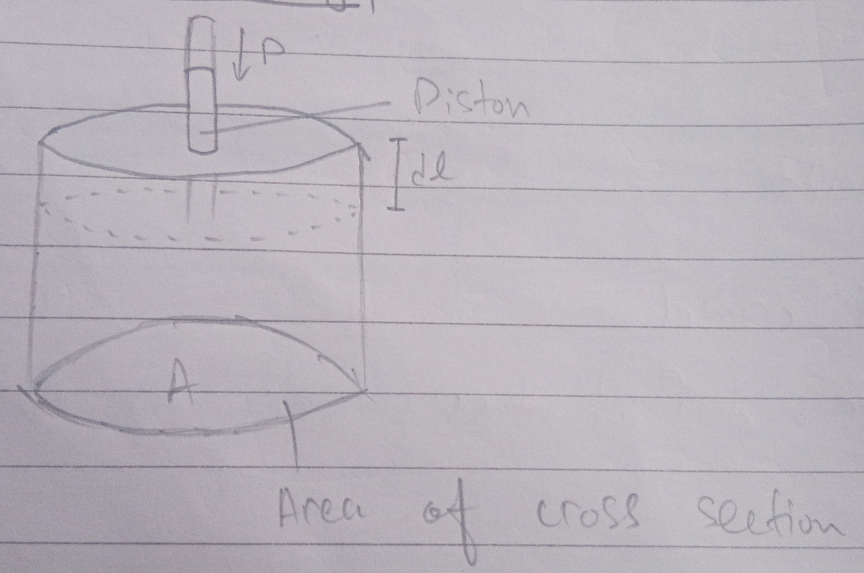 P
Piston
dl
A
Area of cross section